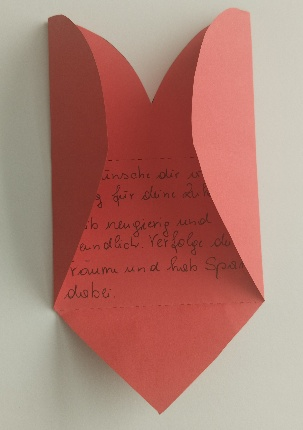 ünsche dir v
g für deine Zuk
ib neugierig und
eundlich. Verfolge de
räume und hab Spa
dabei.